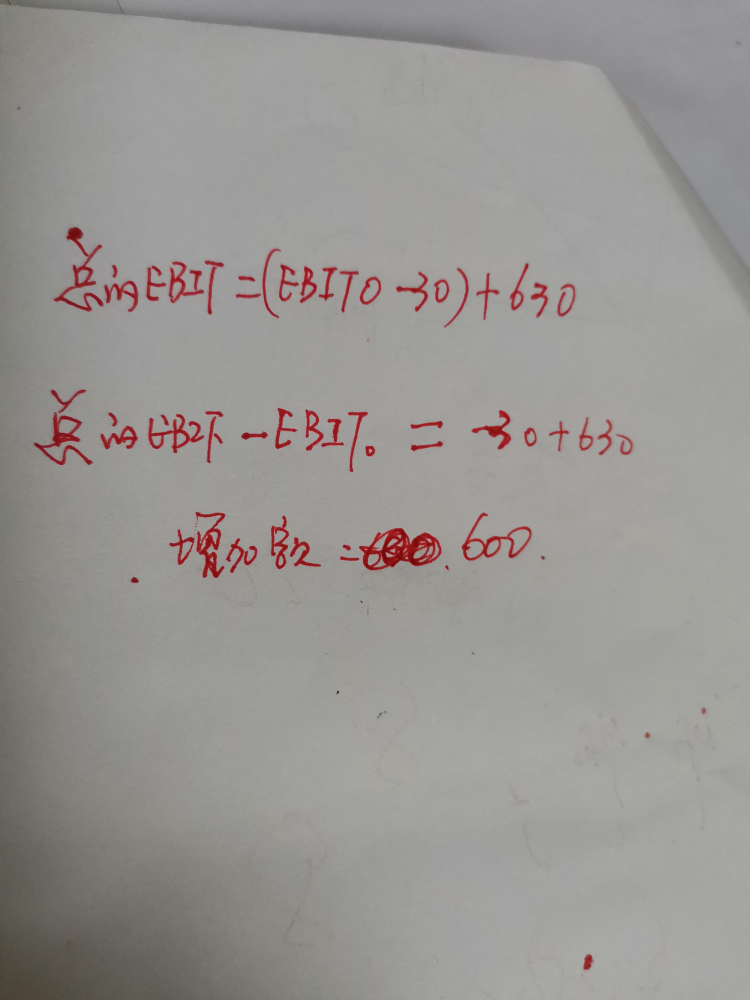 总的EBIT=(EBIT0-30)+630
总的EBIT-EBIT。=-30+630
增加额=600.